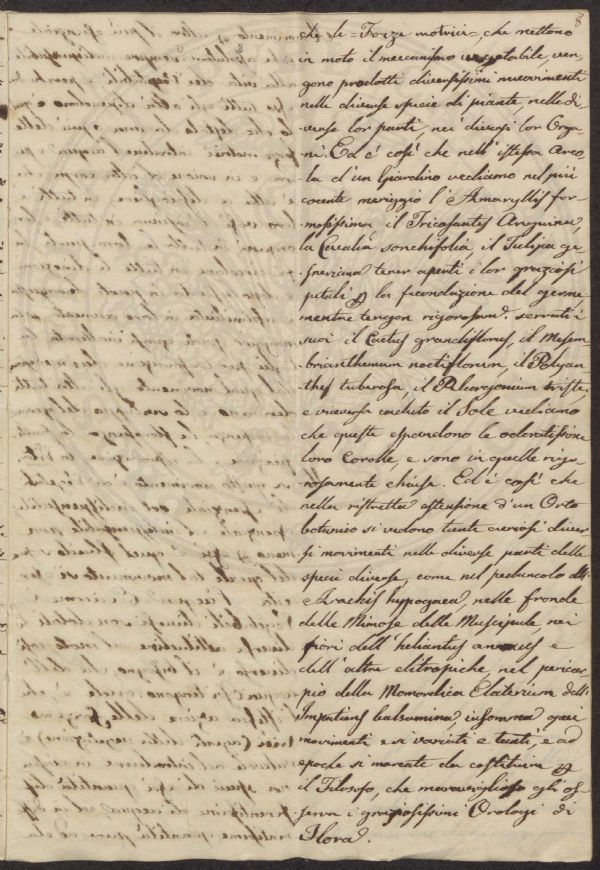 8
che le = Forze motrici =, che mettono
in moto il meccanismo vegetabile, ven-
gono prodotti diversissimi movimenti
nelle diverse specie di piante, nelle di
verse lor parti, nei diversi lor Orga
ni. Ed é così che nell' istessa areo-
la d'un Giardino vediamo nel più
cocente meriggio l' Amaryllis for-
mosissima il Tricosantes Anguinea,
la Cacalia sonchifolia, il Tulipa ge
sneriana tener aperti i lor graziosi
petali la fecondazione del germe
mentre tengon rigorosam. serrati i
suoi il Cactus grandiflorus, il Mesem
brianthemum noctiflorum, il Polyan
thes tuberosa, il Pelargonium triste,
e viceversa caduto il Sole vediamo
che queste espandono le odoratissime
loro Corolle, e sono in quelle rigo-
rosamente chiuse. Ed é così che
nella ristretta estensione d'un Orto
botanico si vedono tanti curiosi diver-
si movimenti nelle diverse parti delle
specie diverse, come nel peduncolo dell'
Arachis hypogaea, nelle fronde
delle Mimose delle Muscipule nei
fiori dell' helianthus annuus e
dell' altre elitropiche, nel pericar-
pio della Momordica Elaterium dell'
Impatiens balsamina, insomma quei
movimenti e si variati e tanti, e ad
epoche si marcate da costituire
il Filosofo, che maraviglioso gli os
serva i graziosissimi Orologi di
Flora.